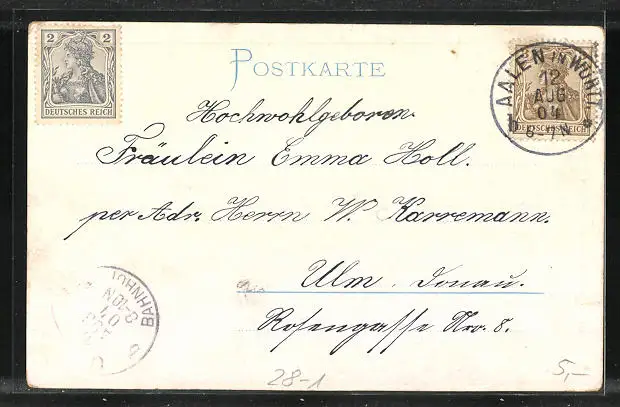 2
DEUTSCHES REICH
POSTKARTE
AALEN IN WÜRTT.
12
AUG
04
6-7N
DEUTSCHES REICH
Hochwohlgeboren.
Fräulein Emma Holl.
per Adr. Herrn W. Karremann.
Ulm. Donau.
Rosengasse Nro. 8.
BAHNHOF
8-10N
04
AUG
28-1
5,-